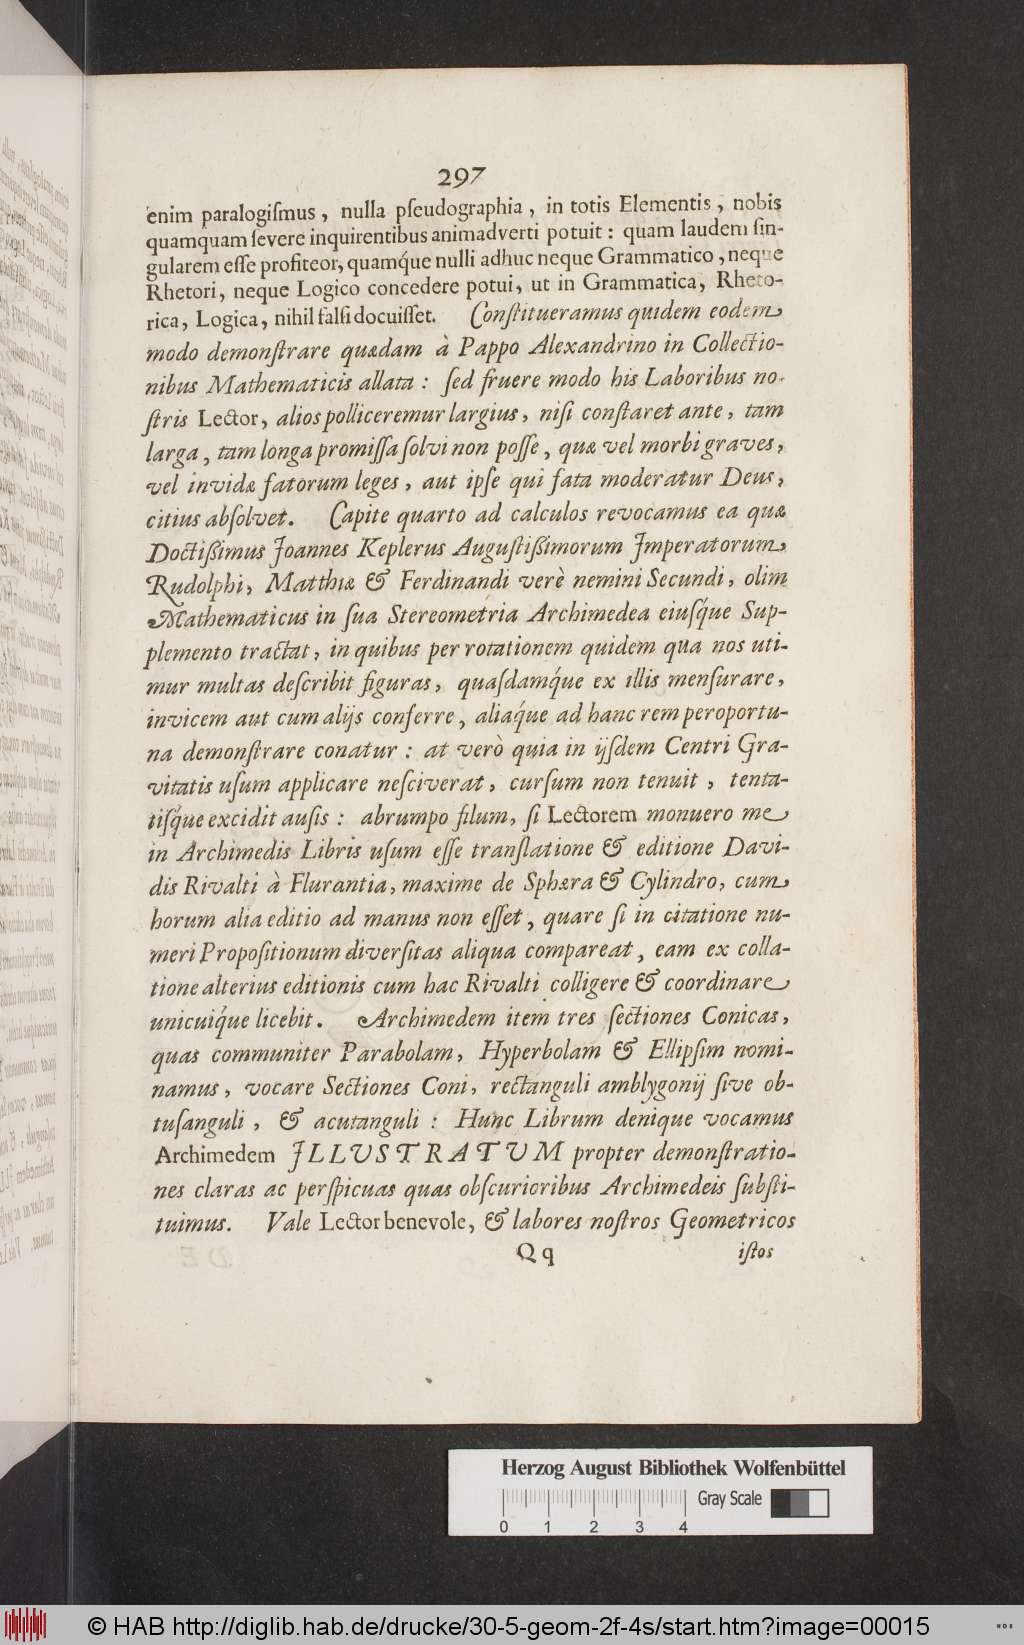 297
enim paralogiſmus, nulla pſeudographia, in totis Elementis, nobis
quamquam ſevere inquirentibus animadverti potuit: quam laudem ſin-
gularem eſſe profiteor, quamq́ue nulli adhuc neque Grammatico, neque
Rhetori, neque Logico concedere potui, ut in Grammatica, Rheto-
rica, Logica, nihil falſi docuiſſet. Conſtitueramus quidem eodem
modo demonſtrare quædam à Pappo Alexandrino in Collectio-
nibus Mathematicis allata: ſed fruere modo his Laboribus no-
ſtris Lector, alios polliceremur largius, niſi conſtaret ante, tam
larga, tam longa promiſſa ſolvi non poſſe, quæ vel morbi graves,
vel invidæ fatorum leges, aut ipſe qui fata moderatur Deus,
citius abſolvet. Capite quarto ad calculos revocamus ea quæ
Doctißimus Joannes Keplerus Auguſtißimorum Imperatorum
Rudolphi, Matthiæ & Ferdinandi verè nemini Secundi, olim
Mathematicus in ſua Stereometria Archimedea eiuſq́ue Sup-
plemento tractat, in quibus per rotationem quidem qua nos uti-
mur multas deſcribit figuras, quaſdamq́ue ex illis menſurare,
invicem aut cum alijs conferre, aliaq́ue ad hanc rem peroportu-
na demonſtrare conatur: at verò quia in ijſdem Centri Gra-
vitatis uſum applicare neſciverat, curſum non tenuit, tenta-
tiſq́ue excidit auſis: abrumpo filum, ſi Lectorem monuero me
in Archimedis Libris uſum eſſe tranſlatione & editione Davi-
dis Rivalti à Flurantia, maxime de Sphæra & Cylindro, cum
horum alia editio ad manus non eſſet, quare ſi in citatione nu-
meri Propoſitionum diverſitas aliqua compareat, eam ex colla-
tione alterius editionis cum hac Rivalti colligere & coordinare
unicuiq́ue licebit. Archimedem item tres ſectiones Conicas,
quas communiter Parabolam, Hyperbolam & Ellipſim nomi-
namus, vocare Sectiones Coni, rectanguli amblygonij ſive ob-
tuſanguli, & acutanguli: Hunc Librum denique vocamus
Archimedem ILLUSTRATUM propter demonſtratio-
nes claras ac perſpicuas quas obſcurioribus Archimedeis ſubſti-
tuimus. Vale Lector benevole, & labores noſtros Geometricos
Qq iſtos
Herzog August Bibliothek Wolfenbüttel
Gray Scale
0 1 2 3 4
© HAB http://diglib.hab.de/drucke/30-5-geom-2f-4s/start.htm?image=00015